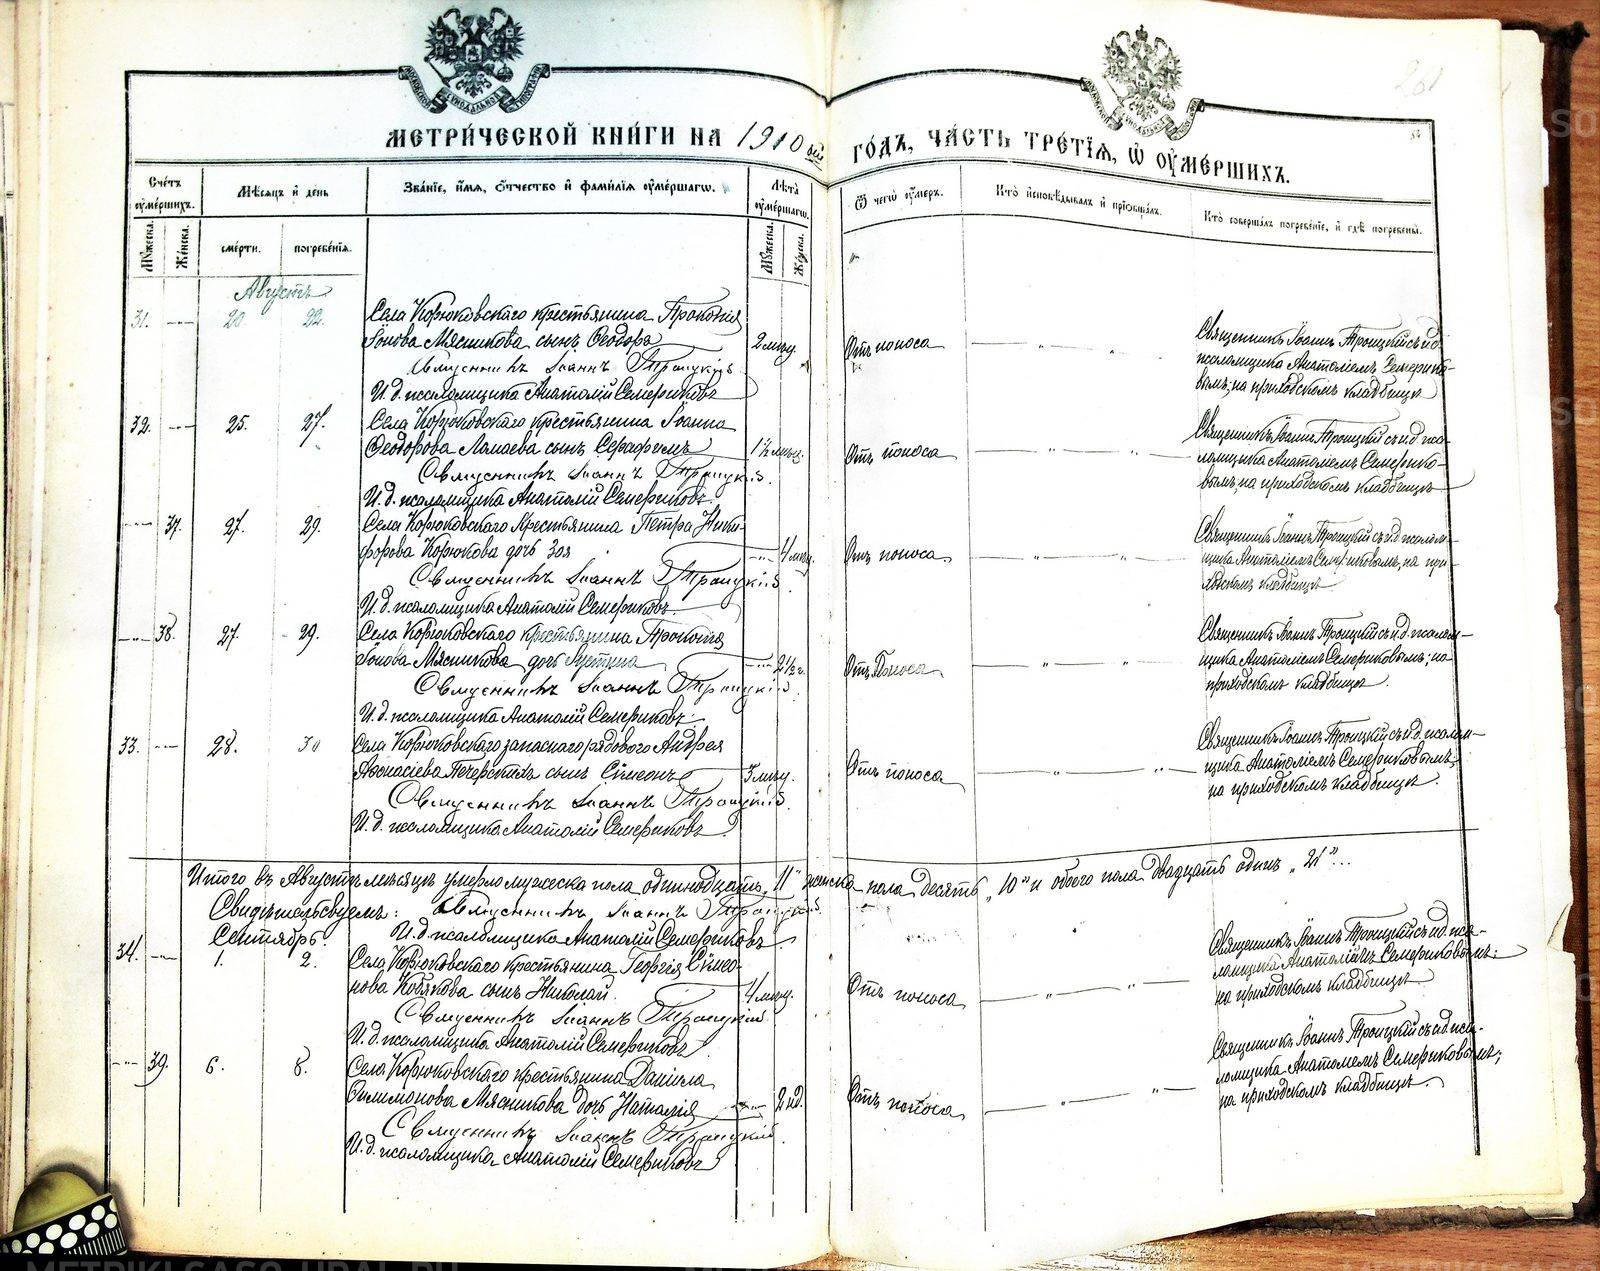 261
МОСКОВСКОЙ СѴНОДАЛЬНОЙ ТИПОГРАФІИ
МЕТРИ́ЧЕСКОЙ КНИ́ГИ НА 1910 ый ГО́ДЪ, ЧА́СТЬ ТРЕ́ТІЯ, Ѡ ОУМЕ́РШИХЪ.
Сче́тъ оуме́ршихъ.
Мѣ́сяцъ и день
Зва́ніе, и́мя, о́тчество и фами́лія оуме́ршагѡ.
Лѣ́та оуме́ршагѡ.
Ѿ чегѡ̀ оу́меръ.
Кто̀ исповѣ́дывалъ и пріѡбща́лъ.
Кто̀ соверша́лъ погребе́ніе, и гдѣ̀ погребены̀.
Му́жеска.
Же́нска.
сме́рти.
погребе́нія.
Му́жеска.
Же́нска.
Августъ
31. 20 22. Села Корюковскаго крестьянина Прокопія
Іонова Мясникова сынъ Ѳеодоръ 2 мѣц. Отъ поноса
Священникъ Іоаннъ Троицкій
И. д. псаломщика Анатолій Семериковъ
Священникъ Іоаннъ Троицкій съ и.д.
псаломщика Анатоліемъ Семерико-
вымъ; на приходскомъ кладбищѣ
32. 25. 27. Села Корюковскаго крестьянина Іоанна
Ѳеодорова сынъ Серафимъ 1½ мѣц. Отъ поноса
Священникъ Іоаннъ Троицкій.
И. д. псаломщика Анатолій Семериковъ.
Священникъ Іоаннъ Троицкій съ и.д. пса-
ломщика Анатоліемъ Семерико-
вымъ, на приходскомъ кладбищѣ
37. 27. 29. Села Корюковскаго Крестьянина Петра Ники-
форова Корюкова дочь Зоя 4 мѣц. Отъ поноса
Священникъ Іоаннъ Троицкій
И. д. псаломщика Анатолій Семериковъ.
Священникъ Іоаннъ Троицкій съ и.д. псалом-
щика Анатоліемъ Семериковымъ, на при-
ходскомъ кладбищѣ
38. 27. 29. Села Корюковскаго крестьянина Прокопія
Іонова Мясникова дочь Іустина 2½ г. Отъ Поноса
Священникъ Іоаннъ Троицкій.
И. д. псаломщика Анатолій Семериковъ.
Священникъ Іоаннъ Троицкій съ и.д. псалом-
щика Анатоліемъ Семериковымъ; на
приходскомъ кладбищѣ.
33. 28. 30 Села Корюковскаго запаснаго рядового Андрея
Аѳанасіева Печерскихъ сынъ Сѵмеонъ 3 мѣц. Отъ поноса
Священникъ Іоаннъ Троицкій.
И. д. псаломщика Анатолій Семериковъ.
Священникъ Іоаннъ Троицкій съ и.д. псалом-
щика Анатоліемъ Семериковымъ,
на приходскомъ кладбищѣ.
Итого въ Августѣ мѣсяцѣ умерло мужеска пола одиннадцать „11" женска пола десять „10" и обоего пола двадцать одинъ „21"...
Свидѣтельствуемъ: Священникъ Іоаннъ Троицкій.
И. д. псаломщика Анатолій Семериковъ
Сентябрь.
34. 1. 2. Села Корюковскаго крестьянина Георгія Сѵмео-
нова Кобякова сынъ Николай. 4 мѣц. Отъ поноса
Священникъ Іоаннъ Троицкій
И. д. псаломщика Анатолій Семериковъ
Священникъ Іоаннъ Троицкій съ и.д. пса-
ломщика Анатоліемъ Семериковымъ:
на приходскомъ кладбищѣ
39. 6. 8. Села Корюковскаго крестьянина Даніила
Филимонова Мясникова дочь Наталія 2 нд. Отъ поноса
Священникъ Іоаннъ Троицкій.
И. д. псаломщика Анатолій Семериковъ
Священникъ Іоаннъ Троицкій съ и.д. пса-
ломщика Анатоліемъ Семериковымъ;
на приходскомъ кладбищѣ.